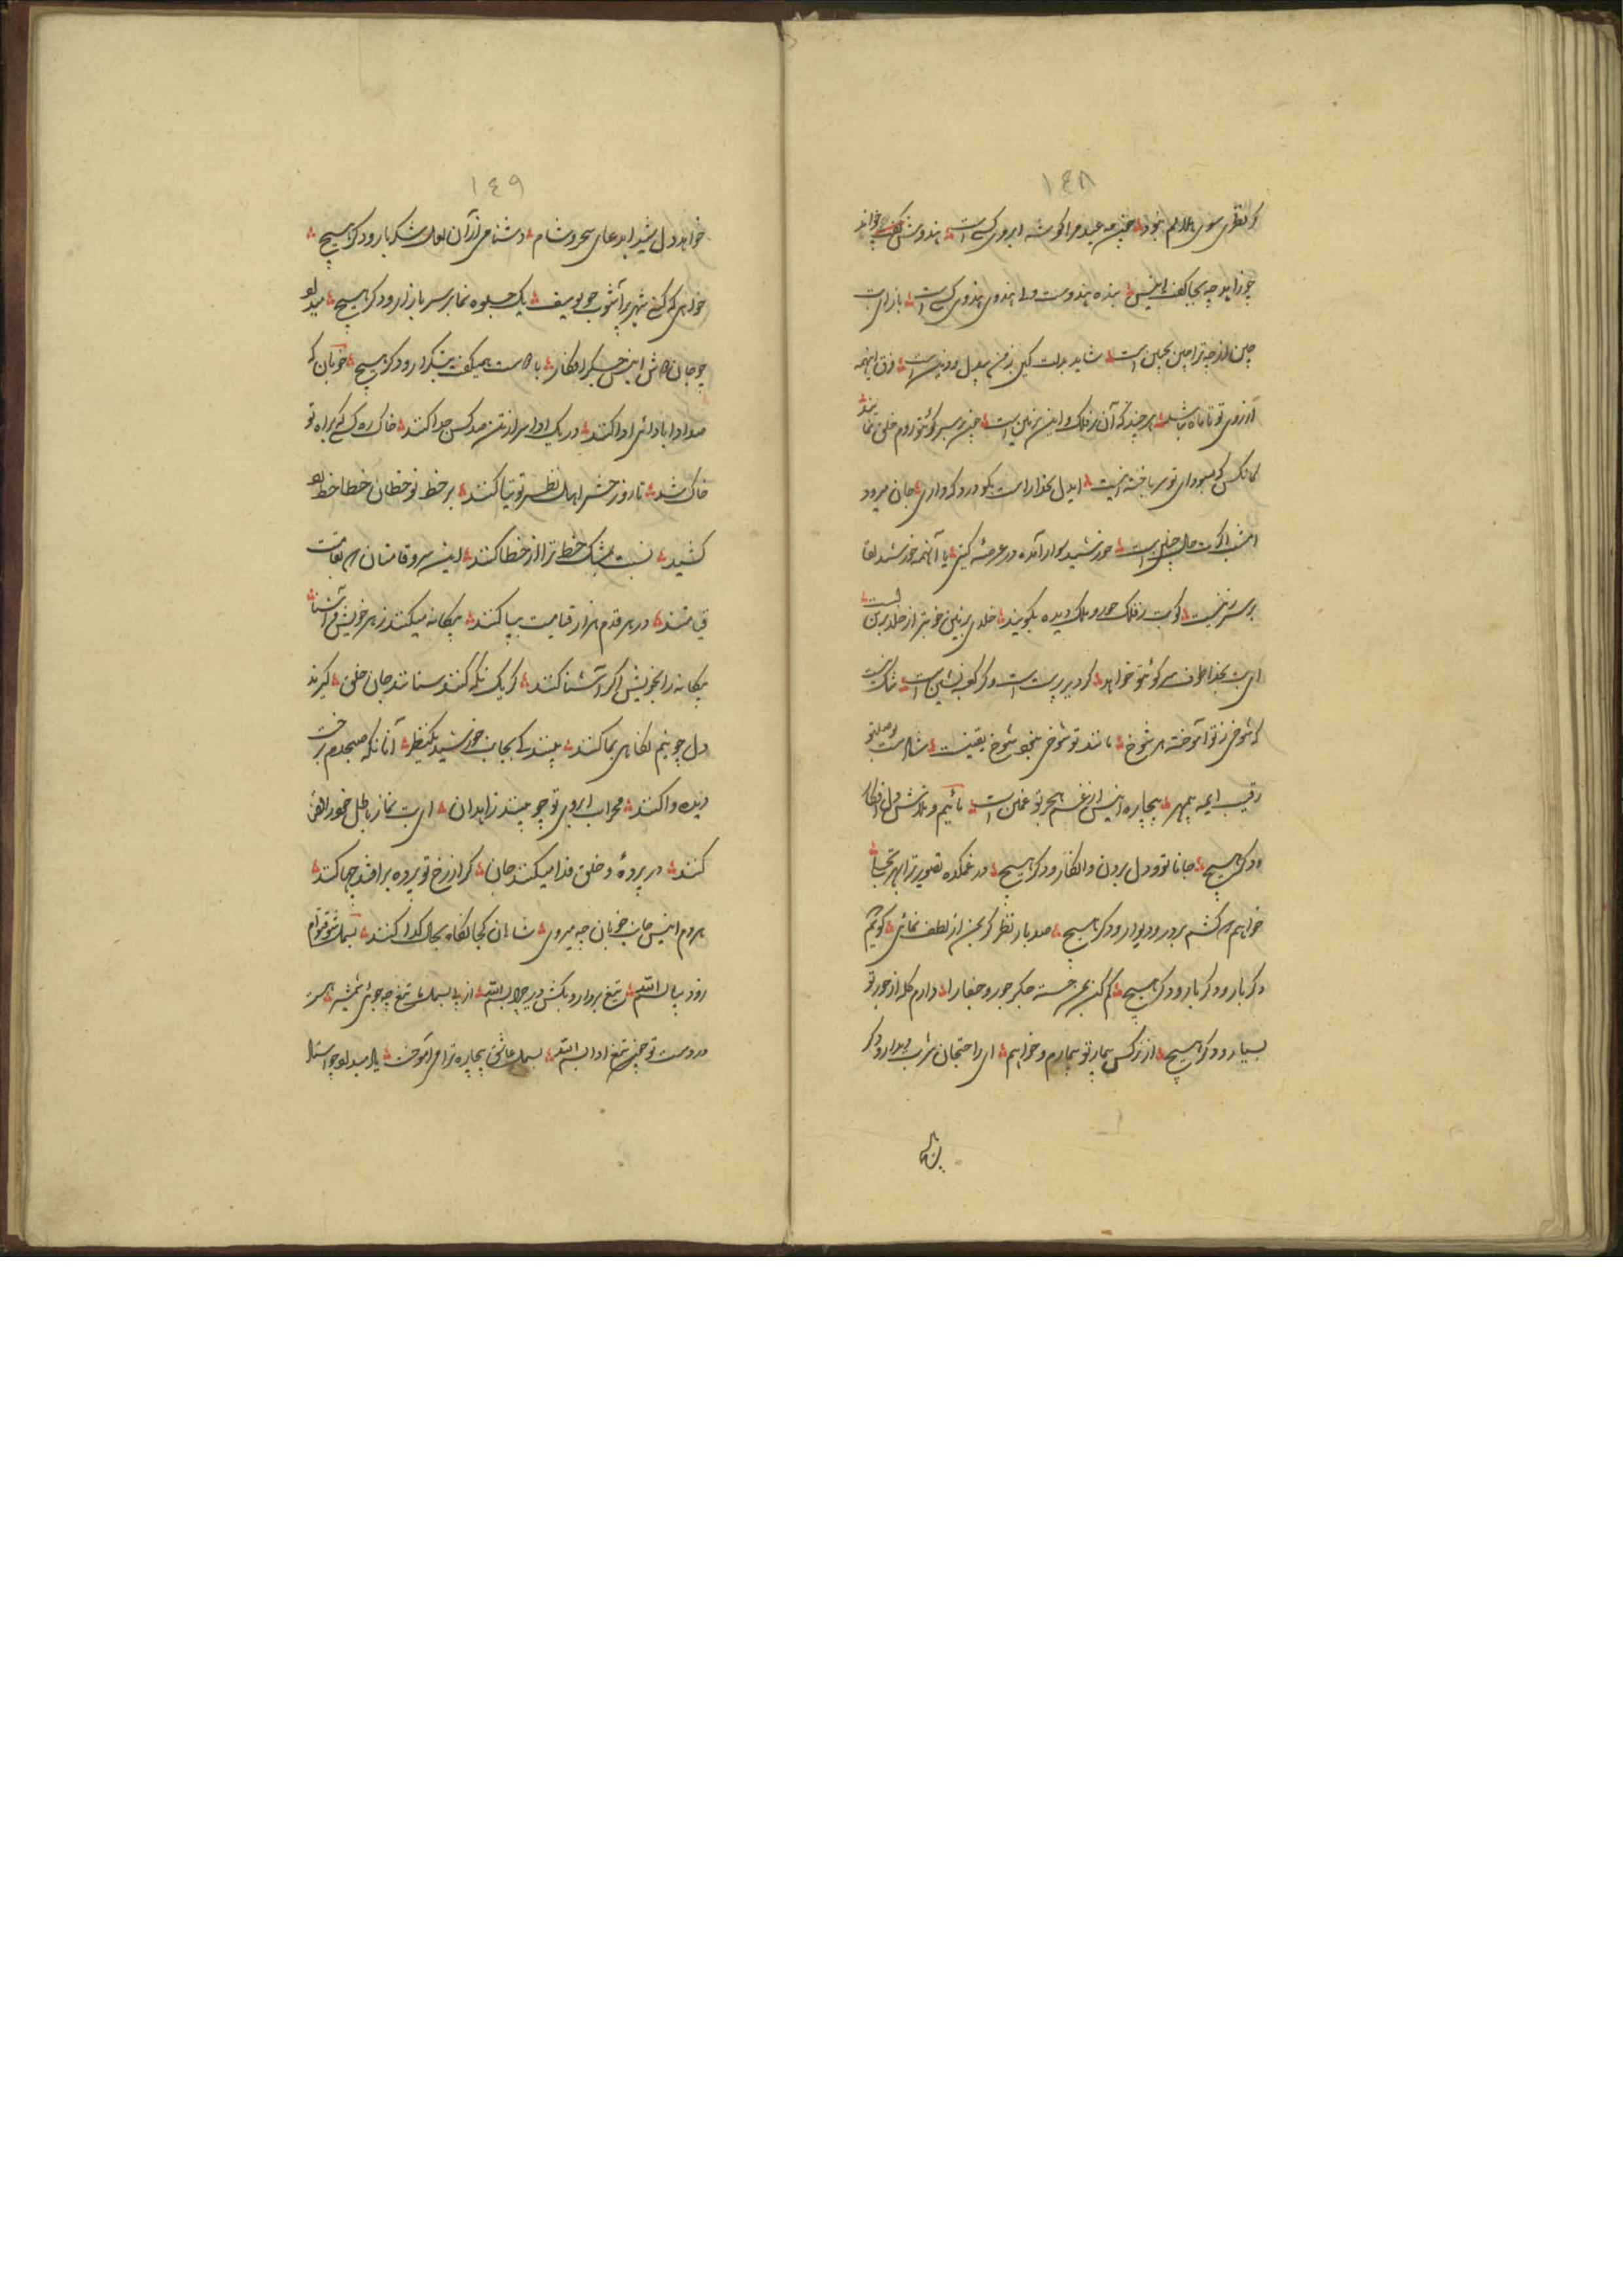 ١٤٨
سوی هلالم نبود چین مه عید مرا گوشه ابروی کسی است هندوش گفت چو خواند
چو زاید چه بجا گفت انیس بنده هندوست ولی هندوی هندوی کسی است باز ای بت
چین از چه ترا چین بجبین است شاید بدلت کین من بیدل است فرق اینهمه
از روی تو تا ماه نباشد هر چند که آن بر فلک و این بزمین است چین بر سر کوی تو روم خلق نمایند
کانکس که بسودای تو سر باخته اینست ایدل بخدا راست بگو درد که داری جان میرود
امشب اگرت حال چنین است خورشید سوار آمده در عرصه گیتی یا آنمه خورشید لقا
بر سر زین است کویت ز فلک حور و ملک دیده بگویند خلدی بزمین خوبتر از خلد برین است
ای بت بخدا طوف سر کوی تو خواهد گر دیر پرست است و گر کعبه نشین است شک نیست
که شوخی ز تو آموخته هر شوخ مانند تو شوخی نبود شوخ یقینست شاد است بوصل تو
رقیب ایمه بیمهر بیچاره انیس از غم هجر تو غمین است مائیم و تلاش دل افکار
و دگر هیچ جانا تو و دل بردن و انکار و دگر هیچ در غمکده تصویر ترا بهر تجلا
خواهیم کشم بر در و دیوار و دگر هیچ صد بار نظر گر بمن از لطف نمائی گویم
دگر بار و دگر بار و دگر هیچ کم کن بمن خسته جگر جور و جفا را دارم گله از جور تو
بسیار و دگر هیچ از نرگس بیمار تو بیمارم و خواهم ای راحت جان شربت دیدار و دگر
١٤٩
خواهد دل شیدا بدعای سحر و شام دشنامی از آن لعل شکر بار و دگر هیچ
خواهی که کنی شهر پر آشوب چو یوسف یک جلوه نما بر سر بازار و دگر هیچ میداد
چو جان انیس جگر افکار با همت میگفت بتکرار و دگر هیچ خوبان که
صد ادا بادائی ادا کنند در یک ادا سر از تن صد کس جدا کنند خاک رهی که براه تو
خاک شد تا روز حشر اهل نظر توتیا کنند بر خط نو خطان خطا خط
کشید نسبت بمشک خط ترا از خطا کنند این سرو قامتان بقامت
قیامتند در هر قدم هزار قیامت بپا کنند بیگانه میکنند ز هر خویش و آشنا
بیگانه را بخویش اگر آشنا کنند گر یک نگه کنند ستانند جان خلق گیرند
دل چو نیم نگاهی بما کنند بینند کی بجانب خورشید یکنظر آنانکه صبحدم برخت
دیده وا کنند محراب ابروی تو چو بینند زاهدان ای بت نماز باطل خود را قضا
کنند در پرده و خلق فدا میکنند جان گر از رخ تو پرده بر افتد چها کنند
هر دم انیس جانب خوبان چه میروی شاهان کجا نگاه بحال گدا کنند بسمل شو تو ام
زود بیا بسم الله تیغ بردار و بکش بسم الله از پی بسمل من تیغ چه جوئی شمشیر هست
در دست تو چین تیغ ادا بسم الله بسمل عاشق بیچاره ترا می آموخت یاد میداد چو استاد